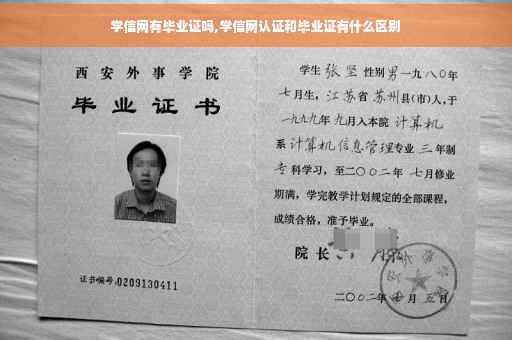 学信网有毕业证吗,学信网认证和毕业证有什么区别
西安外事学院
毕业证书
证书编号:0209130411
学生 张坚 性别 男 一九八〇年
七月生, 江苏省 苏州县(市)人,于
一九九九年 九月入本院 计算机
系 计算机信息管理专业 三 年制
专科学习, 至二〇〇二年 七月修业
期满, 学完教学计划规定的全部课程,
成绩合格, 准予毕业。
院长
二〇〇二年 月 五日